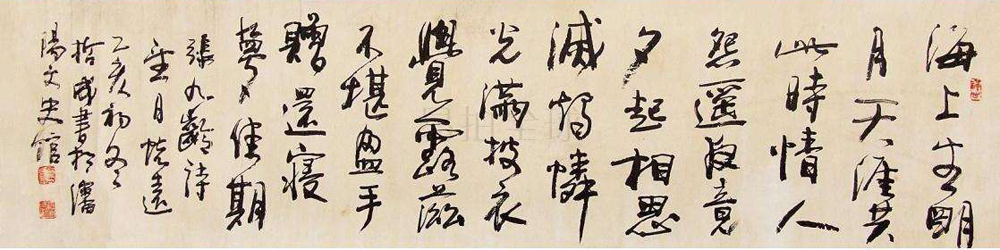 海上生明
月天涯共
此時情人
怨遙夜竟
夕起相思
滅燭憐
光滿披衣
覺露滋
不堪盈手
贈還寢
夢佳期
張九齡詩
望月懷遠
乙亥初冬
哲成書於瀋
陽文史館